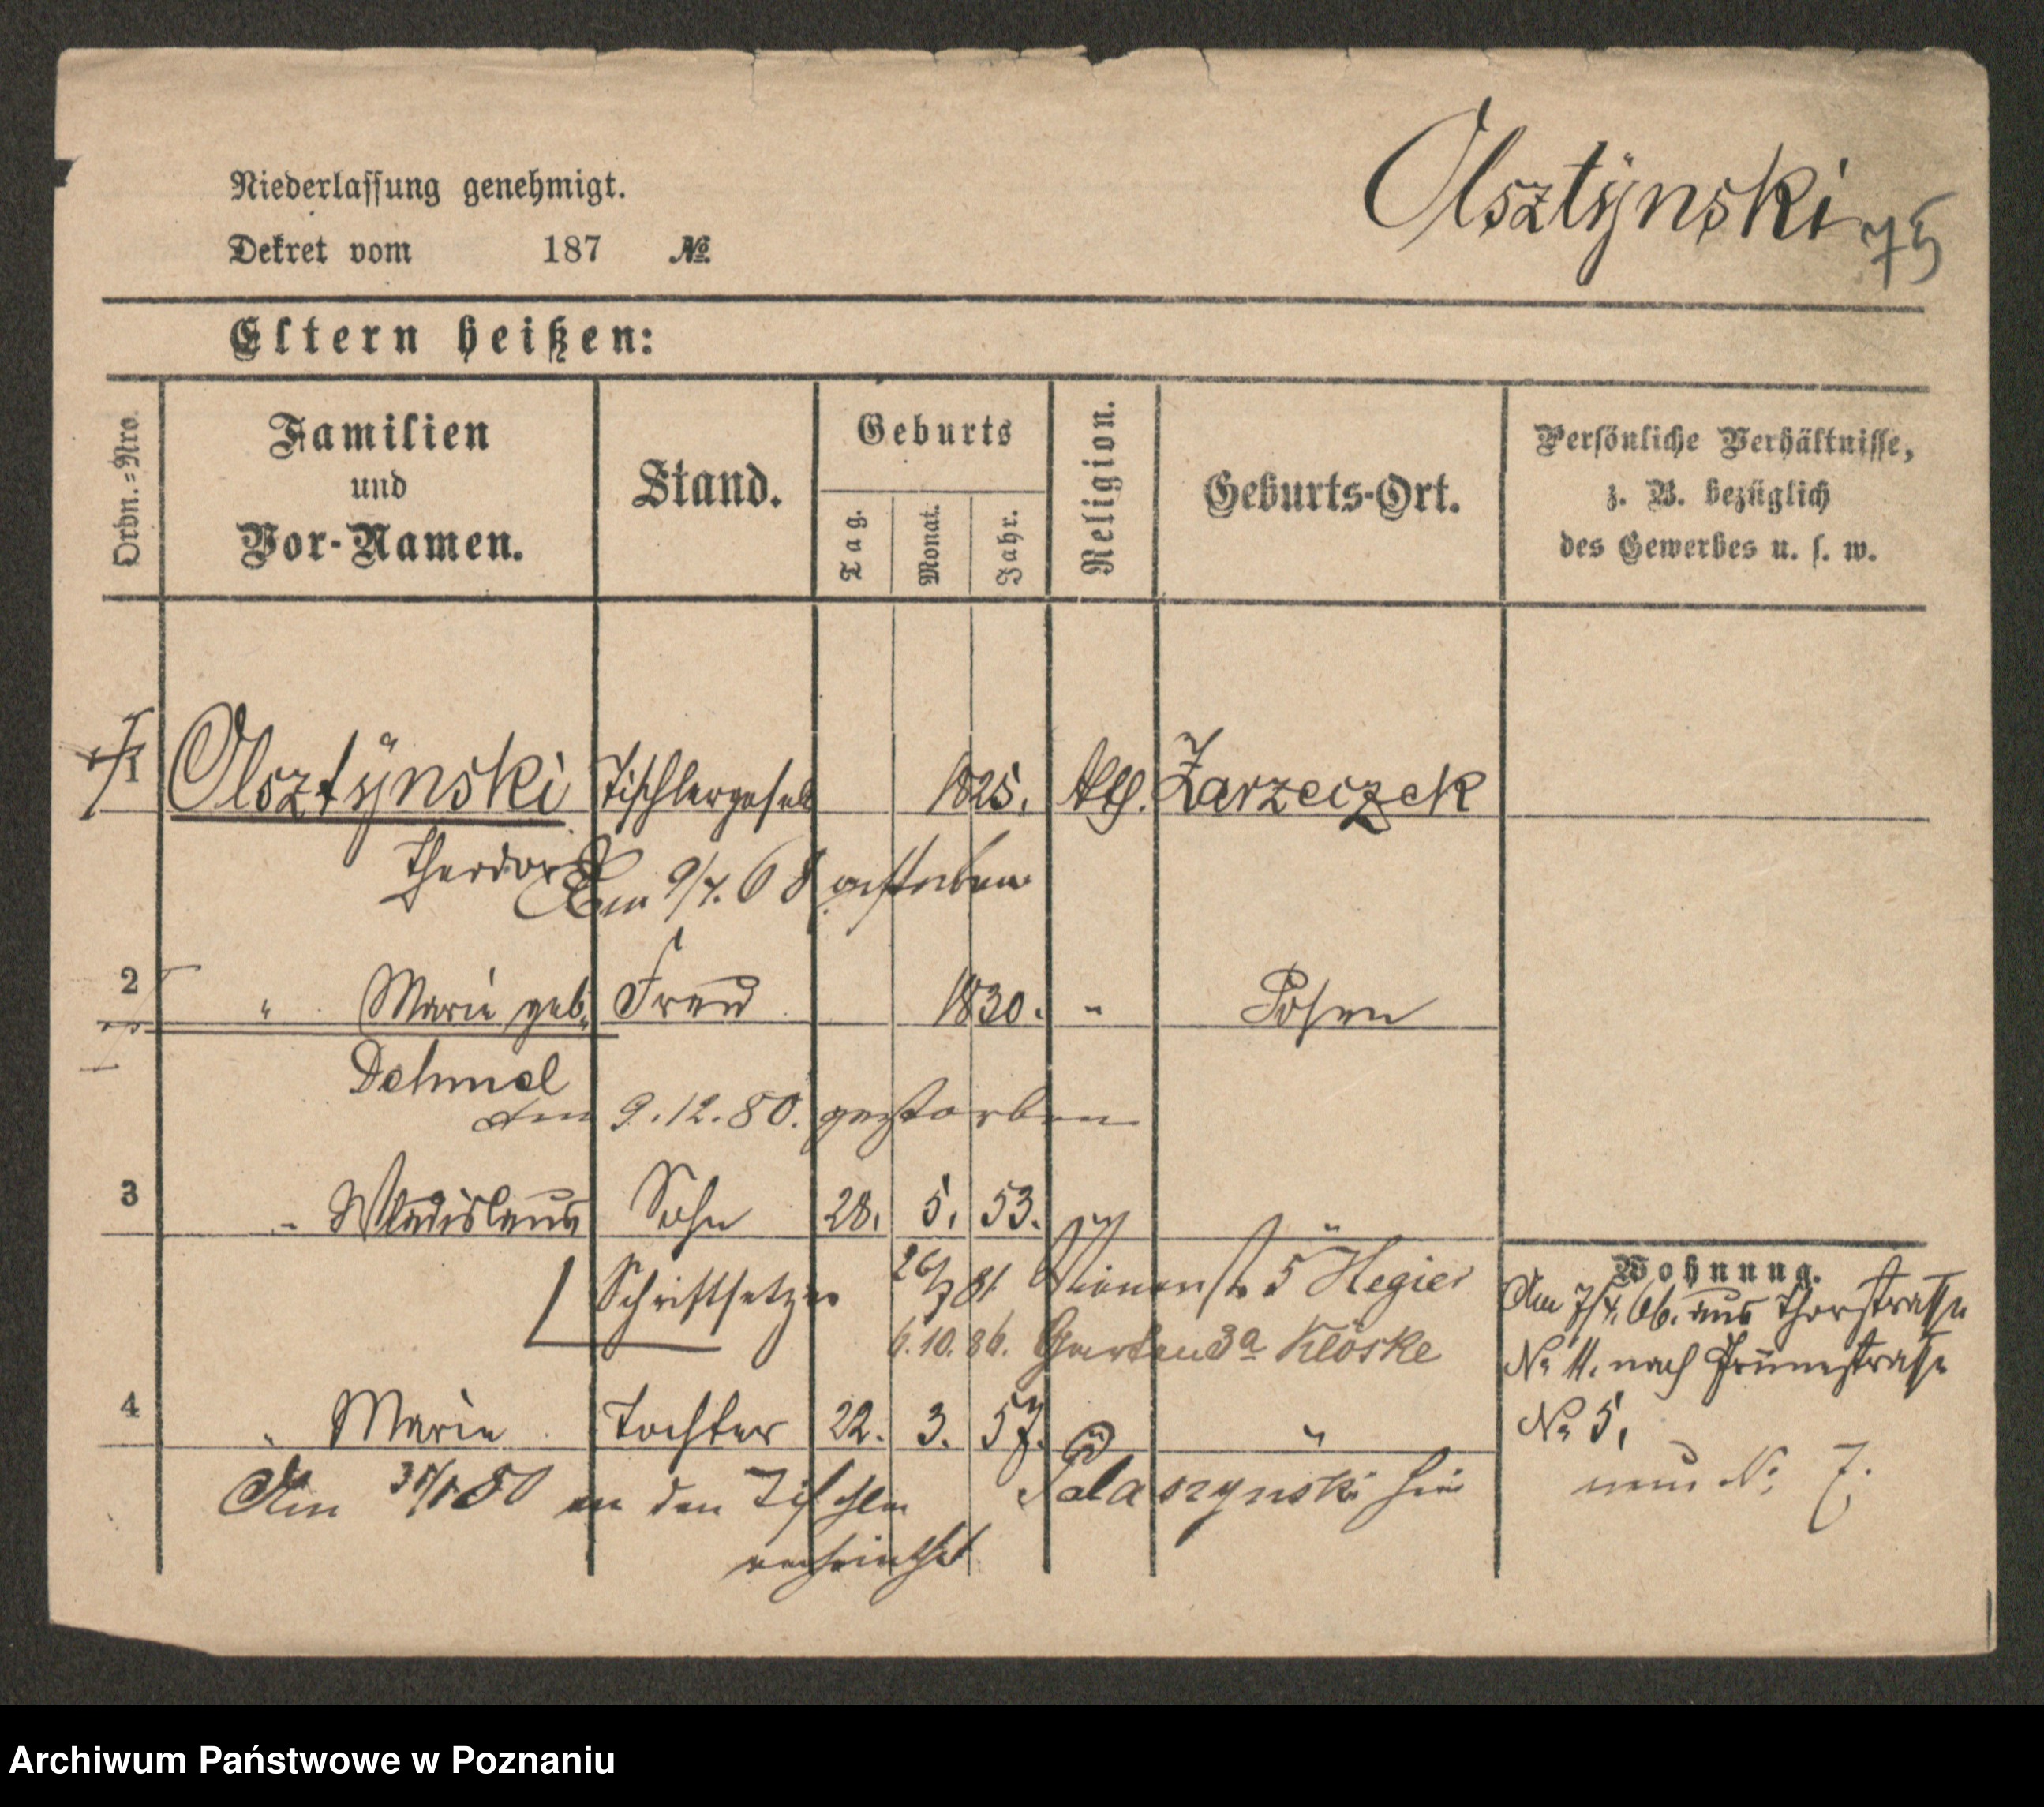 Olsztÿnski
75
Niederlassung genehmigt.
Dekret vom 187 №
Eltern heißen:
Ordn.=Nro.
Familien
und
Vor-Namen.
Stand.
Geburts
Tag.
Monat.
Jahr.
Religion.
Geburts-Ort.
Persönliche Verhältnisse,
z. B. bezüglich
des Gewerbes u. s. w.
1 Olsztÿnski Tischlergesell 1825. kth. Zarzeczek
Theodor
Am 9/4. 68 gestorben
2 " Marie geb. Frau 1830. " Posen
Dehmel
Am 9.12.80. gestorben
3 " Wladislaus Sohn 28. 5. 53. "
Schriftsetzer 81 5 Hegier
6.10.86. Garten 3a Klöske
4 " Marie Tochter 22. 3. 57. " "
Am 80 an den Tischler Palaszynski hier
verheirathet
Wohnung.
Am 7/4. 66. aus Thorstraße
No 11. nach Grünestraße
No 5.
nun No 7.
Archiwum Państwowe w Poznaniu